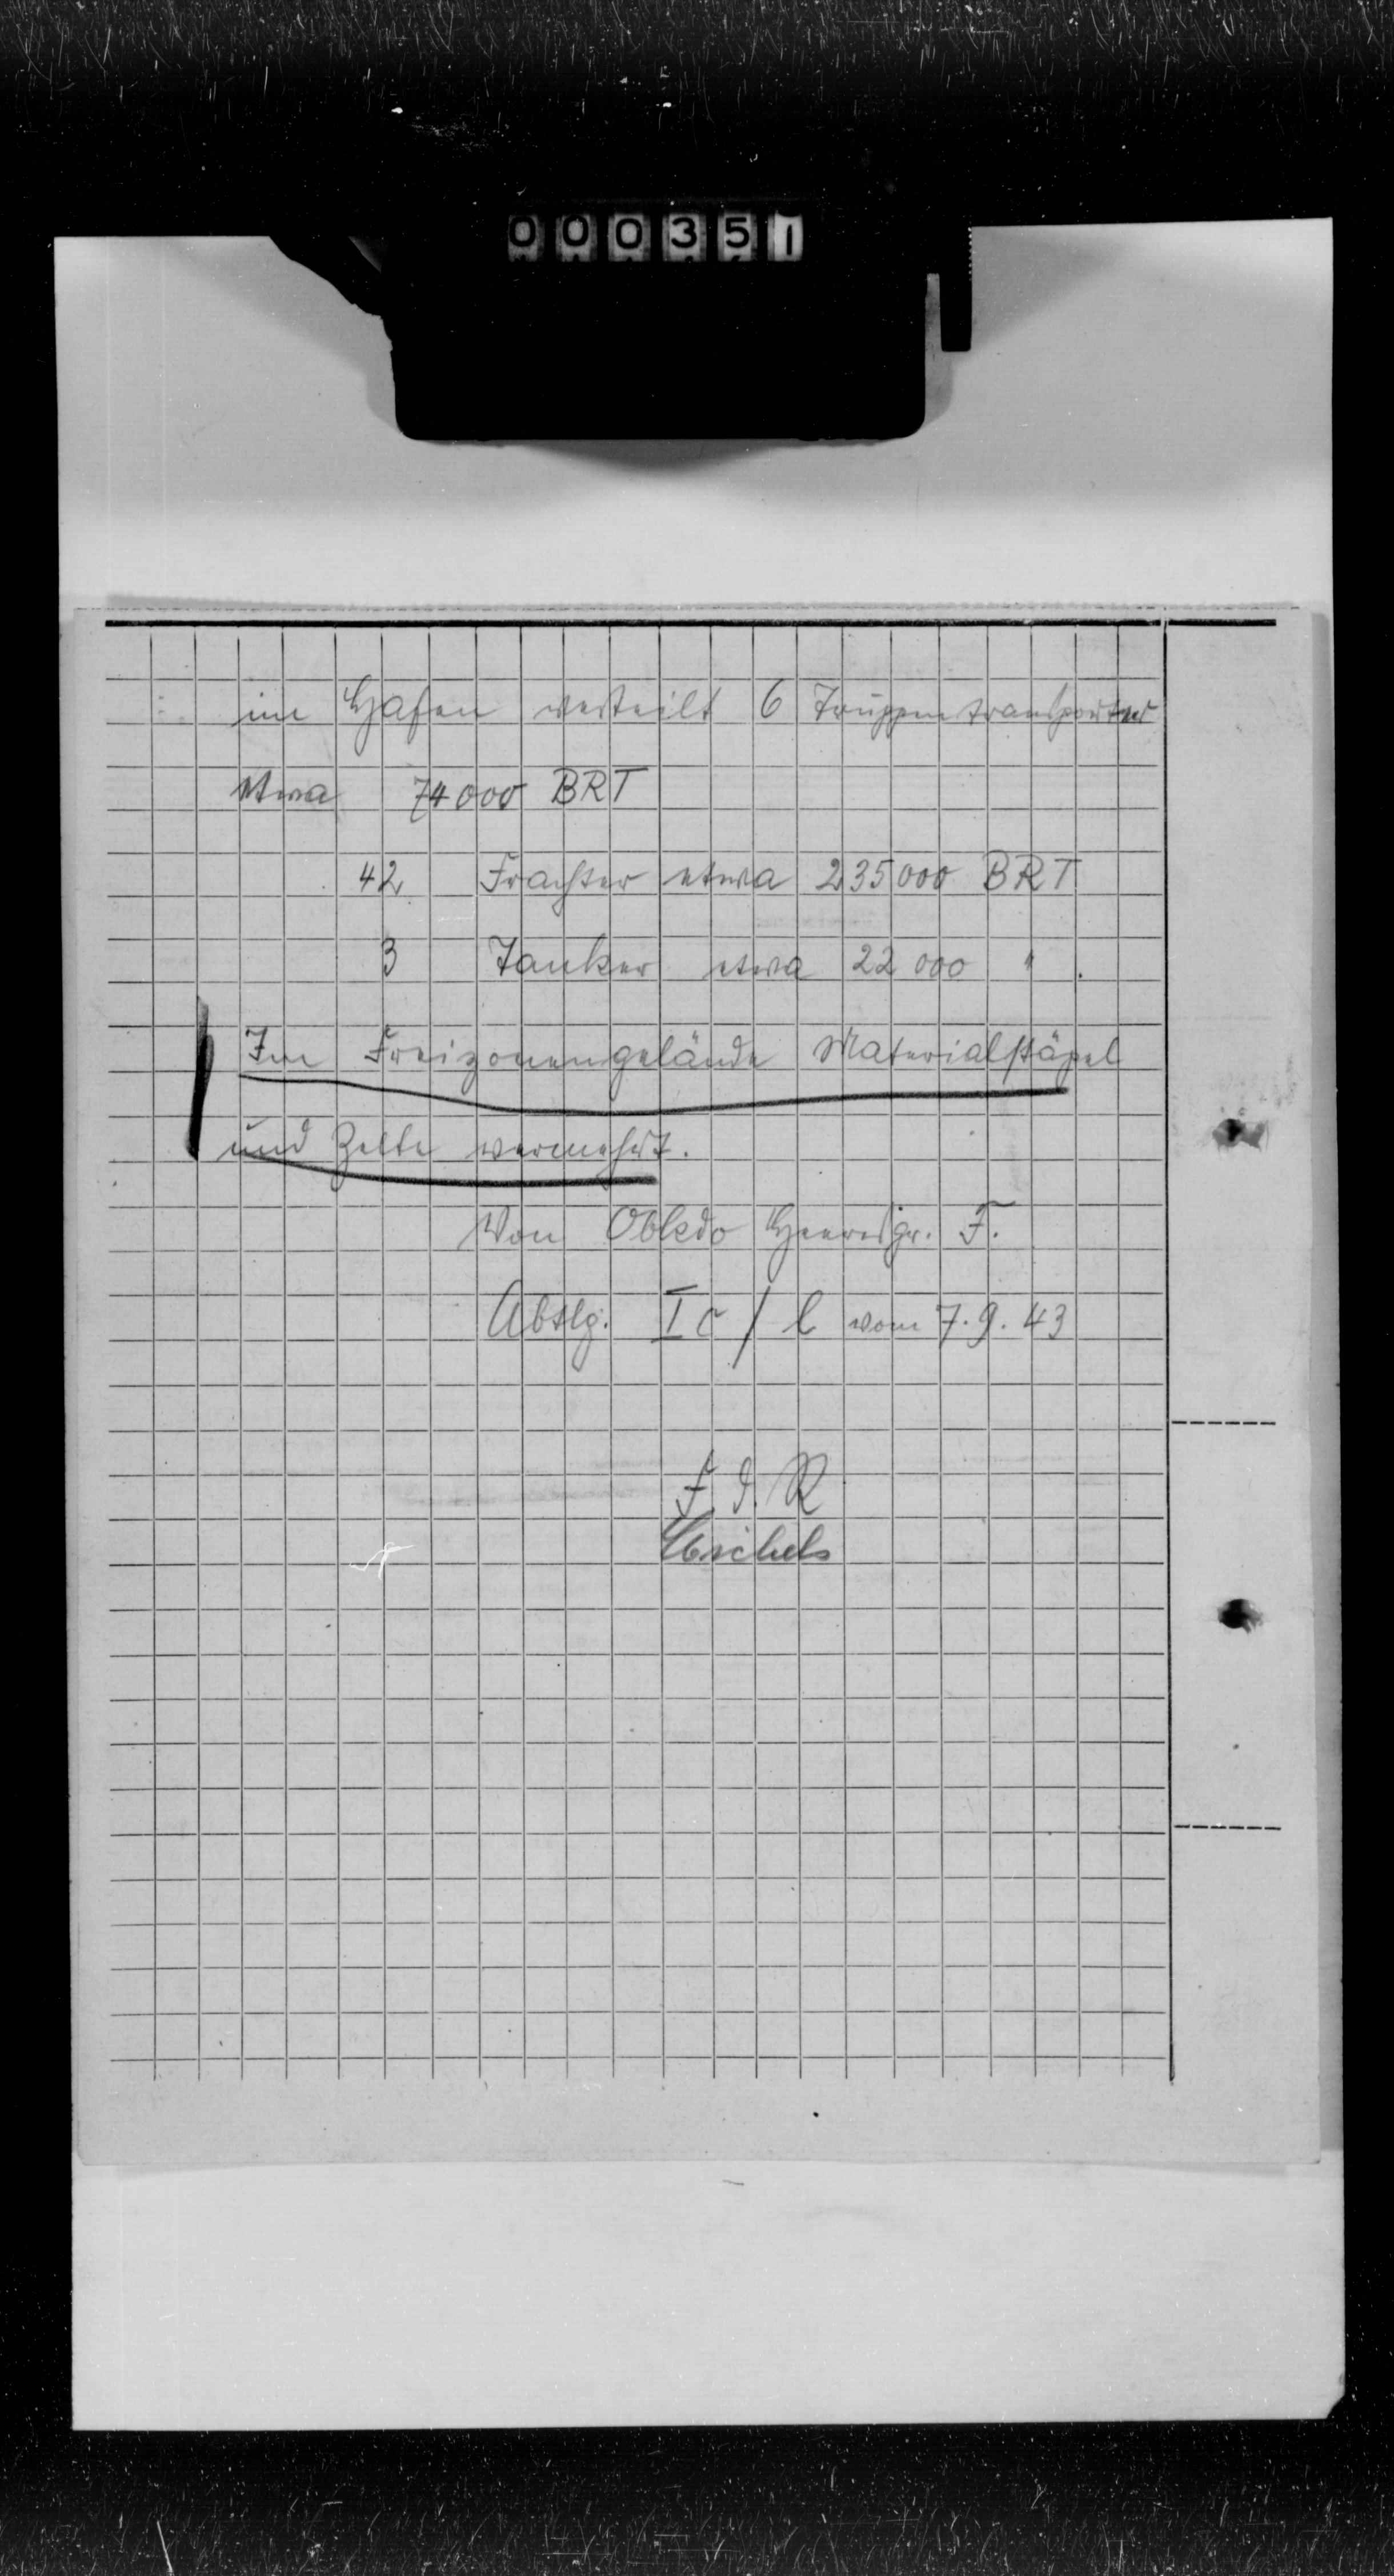 000351
im Hafen verteilt 6 Truppentransporter
etwa 74000 BRT
42 Frachter etwa 235000 BRT
3 Tanker etwa 22 000 " .
Im Freizonengelände Materialstapel
und Zelte vermehrt.
Von Obkdo Heeresgr. F.
Abtlg. Ic / l vom 7.9.43
F. d. R